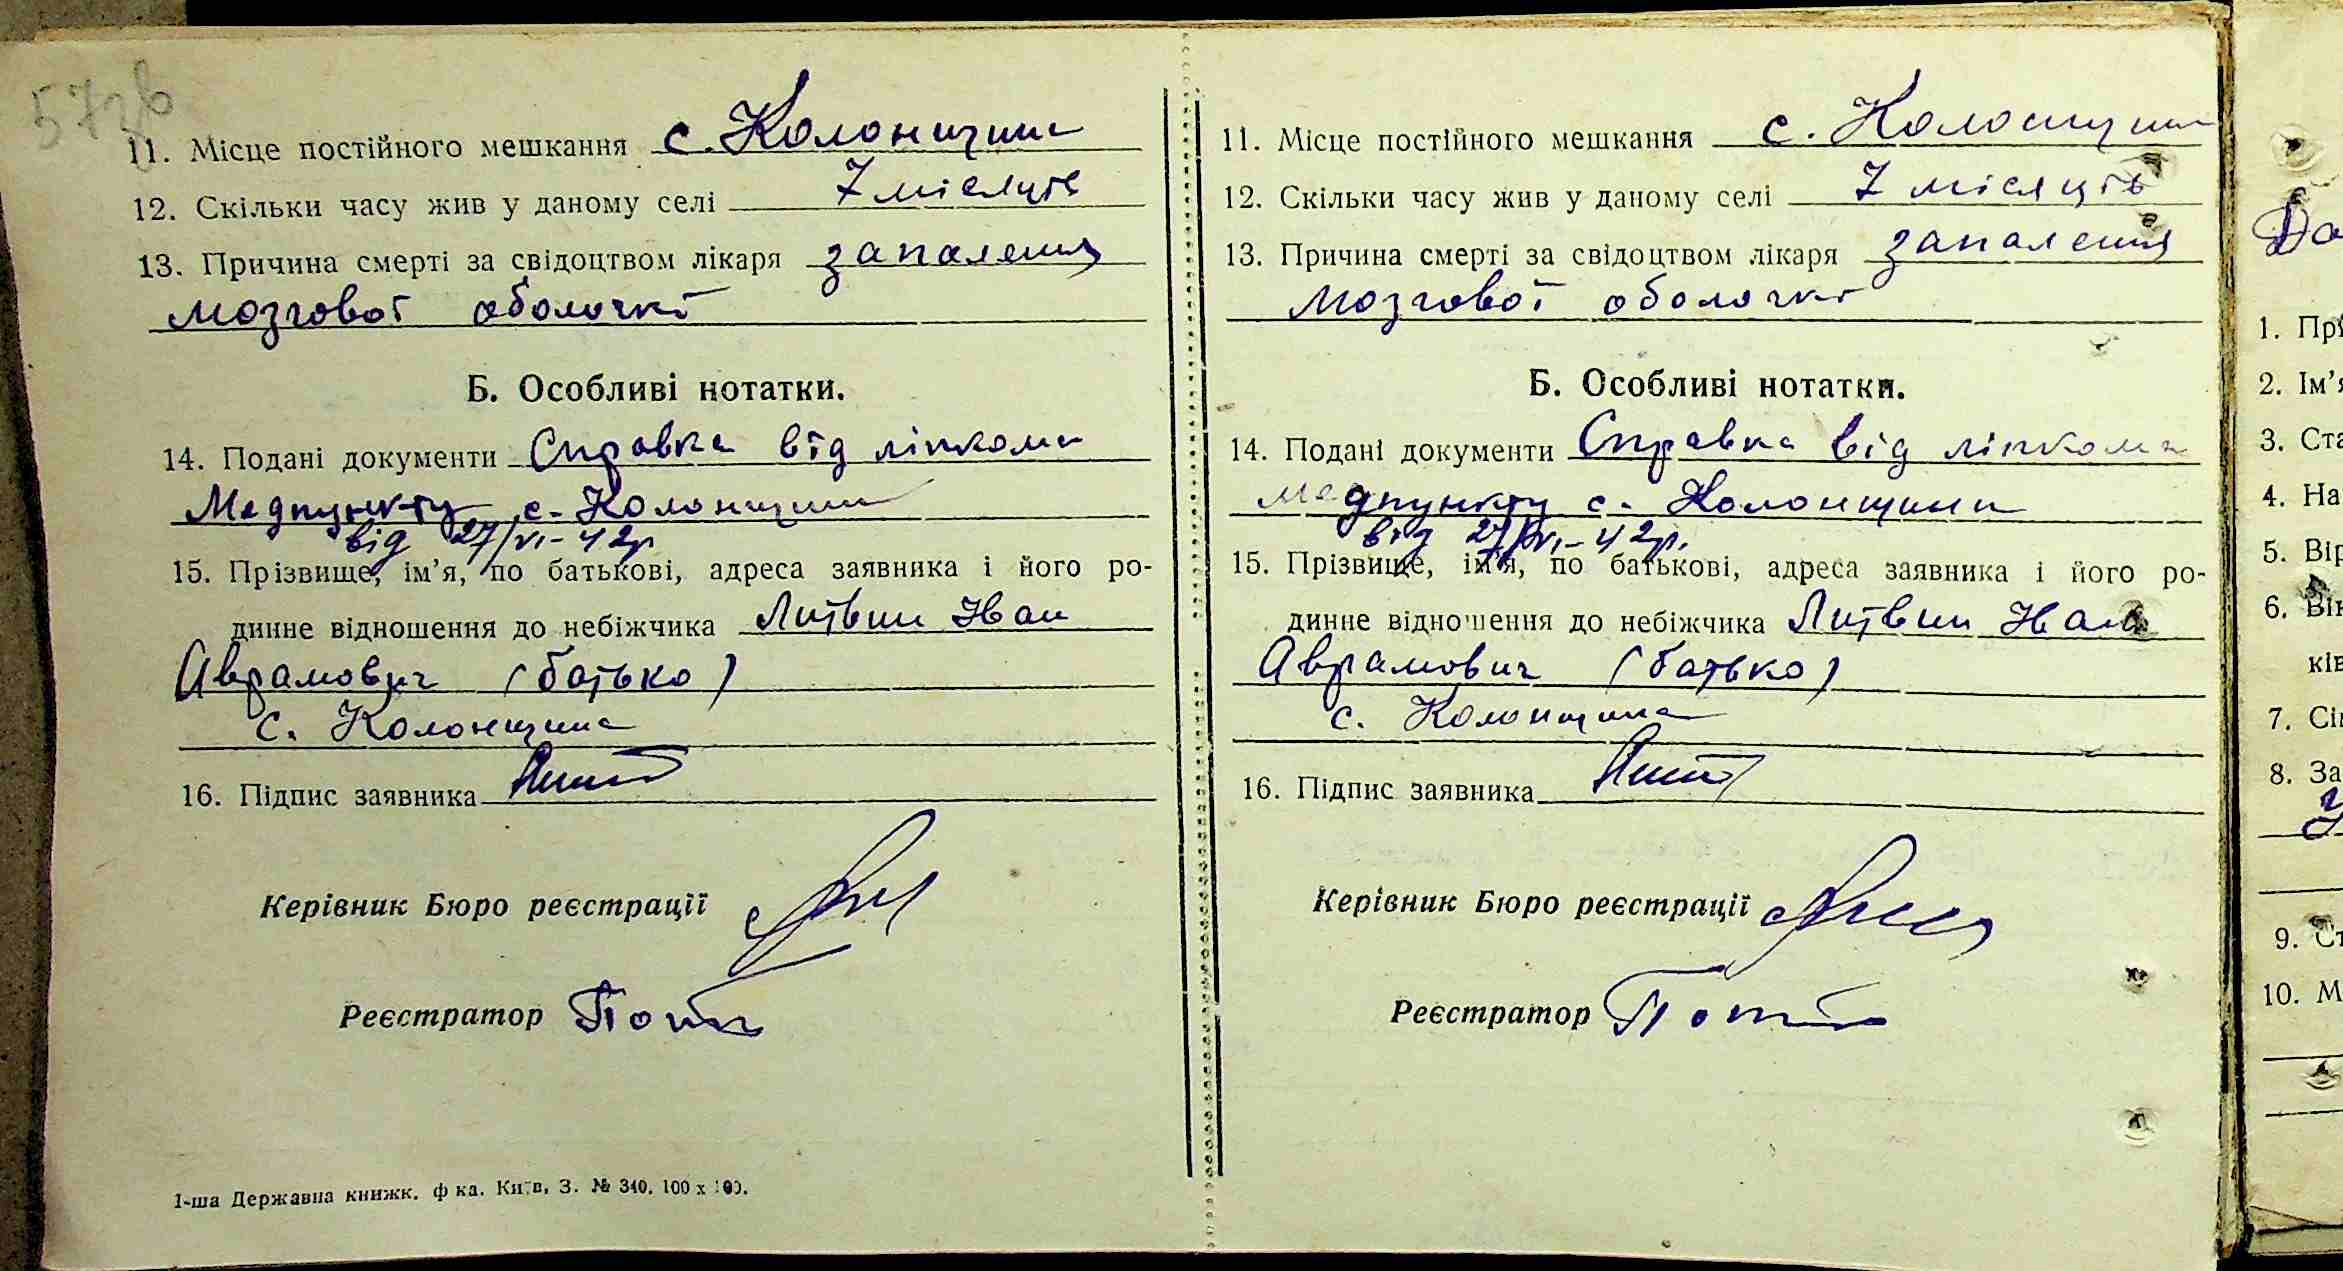 57зв
11. Місце постійного мешкання с. Колонщина
12. Скільки часу жив у даному селі 7 місяців
13. Причина смерті за свідоцтвом лікаря запалення
мозгової оболочкі
Б. Особливі нотатки.
14. Подані документи Справка від ліпкома
Медпункту с. Колонщини
від 27/VI-42р
15. Прізвище, ім'я, по батькові, адреса заявника і його ро-
динне відношення до небіжчика Литвин Іван
Аврамович (батько)
с. Колонщина
16. Підпис заявника Лит
Керівник Бюро реєстрації
Реєстратор
1-ша Державна книжк. ф ка. Київ, З. № 340. 100 х 100.
11. Місце постійного мешкання с. Колонщина
12. Скільки часу жив у даному селі 7 місяців
13. Причина смерті за свідоцтвом лікаря запалення
мозгової оболочкі
Б. Особливі нотатки.
14. Подані документи Справка від ліпкома
Медпункту с. Колонщини
від 27/VI-42р.
15. Прізвище, ім'я, по батькові, адреса заявника і його ро-
динне відношення до небіжчика Литвин Іван
Аврамович (батько)
с. Колонщина
16. Підпис заявника Лит
Керівник Бюро реєстрації
Реєстратор
1. Прі
2. Ім'я
3. Ста
4. На
5. Вір
6. Вік
ків
7. Сі
8. За
9. Ст
10. М